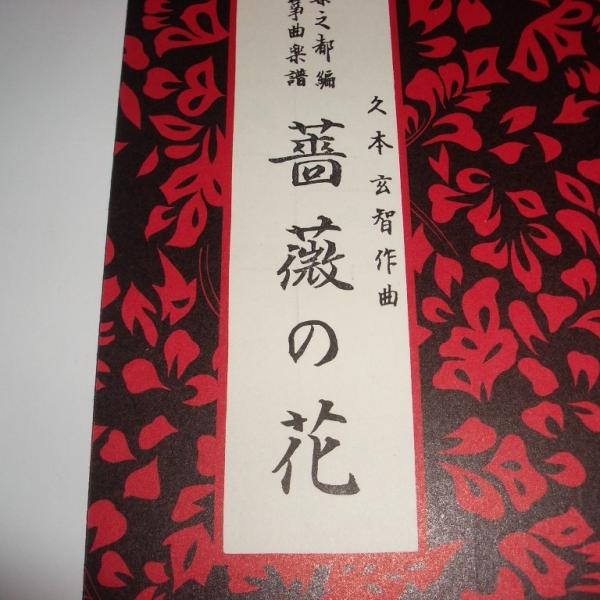 久本玄智作曲
之都編
箏曲楽譜
薔薇の花